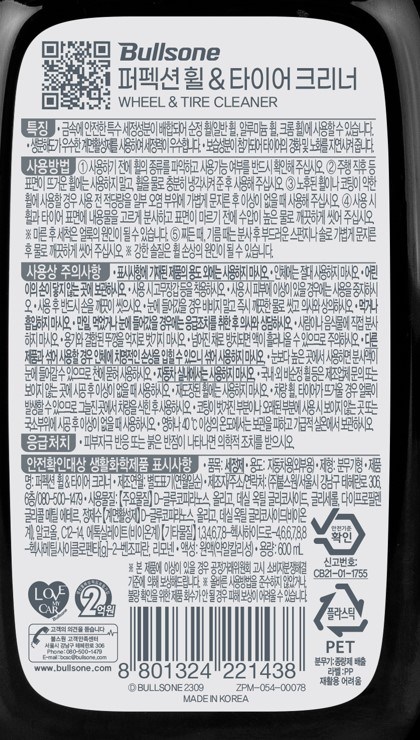 Bullsone
퍼펙션 휠 & 타이어 크리너
WHEEL & TIRE CLEANER
특징 • 금속에 안전한 특수 세정성분이 배합되어 순정 휠(일반 휠, 알루미늄 휠, 크롬 휠)에 사용할 수 있습니다.
• 생분해도가 우수한 계면활성제를 사용하여 세정력이 우수합니다. • 보습성분이 첨가되어 타이어의 경화 및 노화를 지연시켜 줍니다.
사용방법 ① 사용하기 전에 휠의 종류를 파악하고 사용가능 여부를 반드시 확인해 주십시오. ② 주행 직후 등
표면이 뜨거운 휠에는 사용하지 말고, 휠을 물로 충분히 냉각시켜 준 후 사용해 주십시오. ③ 노후된 휠이나 코팅이 약한
휠에 사용할 경우 사용 전 적당량을 일부 오염 부위에 가볍게 문지른 후 이상이 없을 때 사용해 주십시오. ④ 사용 시
휠과 타이어 표면에 내용물을 고르게 분사하고 표면이 마르기 전에 수압이 높은 물로 깨끗하게 씻어 주십시오.
※ 마른 후 세척은 얼룩의 원인이 될 수 있습니다. ⑤ 찌든 때, 기름 때는 분사 후 부드러운 스펀지나 솔로 가볍게 문지른
후 물로 깨끗하게 씻어 주십시오. ※ 강한 솔질은 휠 손상의 원인이 될 수 있습니다.
사용상 주의사항 • 표시사항에 기재된 제품의 용도 외에는 사용하지 마시오. • 인체에는 절대 사용하지 마시오. • 어린
이의 손이 닿지 않는 곳에 보관하시오. • 사용 시 고무장갑 등을 착용하시오. • 사용 시 피부에 이상이 있을 경우에는 사용을 중지하시
오. • 사용 후 반드시 손을 깨끗이 씻으시오. • 눈에 들어갔을 경우 비비지 말고 즉시 깨끗한 물로 씻고 의사와 상의하시오. • 먹거나
흡입하지 마시오. • 만일, 먹었거나 눈에 들어갔을 경우에는 응급조치를 취한 후 의사와 상의하시오. • 사람이나 음식물에 직접 분사
하지 마시오. • 용기와 결합된 뚜껑을 억지로 벗기지 마시오. • 넘어진 채로 방치하면 액이 흘러나올 수 있으므로 주의하시오. • 다른
제품과 섞어 사용할 경우 인체에 치명적인 손상을 입힐 수 있으니 섞어 사용하지 마시오. • 눈보다 높은 곳에서 사용하면 분사액이
눈에 들어갈 수 있으므로 천에 묻혀 사용하시오. • 자동차 실내에서는 사용하지 마시오. • 국내 외 비순정 휠 등은 제조업체 문의 또는
보이지 않는 곳에 시공 후 이상이 없을 때 사용하시오. • 재도장된 휠에는 사용하지 마시오. • 차량 휠, 타이어가 뜨거울 경우 얼룩이
발생할 수 있으므로 그늘진 곳에서 차량을 식힌 후 사용하시오. • 코팅이 벗겨진 부분이나 오래된 부분에 사용 시 보이지 않는 곳 또는
국소부위에 시공 후 이상이 없을 때 사용하시오. • 영하나 40℃ 이상의 온도에서는 보관을 피하고 가급적 실온에서 보관하시오.
응급처치 • 피부자극 반응 또는 붉은 반점이 나타나면 의학적 조치를 받으시오.
안전확인대상 생활화학제품 표시사항 • 품목: 세정제 • 용도: 자동차용(외부용) • 제형: 분무기형 • 제품
명: 퍼펙션 휠 & 타이어 크리너 • 제조연월: 별도표기(연월일순) • 제조자/주소/연락처: (주)불스원/서울시 강남구 테헤란로 306,
6층/080-500-1479 • 사용물질: [주요물질] D-글루코피라노스, 올리고, 데실 옥틸 글리코사이드, 글리세롤, 다이프로필렌
글리콜 메틸 에테르, 정제수 [계면활성제] D-글루코피라노스, 올리고, 데실 옥틸 글리코사이드(비이온
계), 알코올, C12-14, 에톡실레이트(비이온계) [기타물질] 1,3,4,6,7,8-헥사하이드로-4,6,6,7,8,8
-헥사메틸사이클로펜타[g]-2-벤조피란, 리모넨 • 액성: 원액(약알칼리성) • 용량: 600 mL
안전기준
확인
신고번호:
CB21-01-1755
※ 본 제품에 이상이 있을 경우 공정거래위원회 고시 소비자분쟁해결
기준에 의해 보상해드립니다. ※ 올바른 사용방법을 준수하지 않았거나,
불량 확인을 위한 제품 회수가 안 될 경우 피해 보상이 어려울 수 있습니다.
LOVE & CARE
2억원
고객의 의견을 듣습니다
불스원 고객만족센터
서울시 강남구 테헤란로 306
Phone: 080-500-1479
www.bullsone.com
플라스틱
PET
분무기:종량제 배출
라벨:PP
재활용 어려움
8 801324 221438
© BULLSONE 2309 ZPM-054-00078
MADE IN KOREA